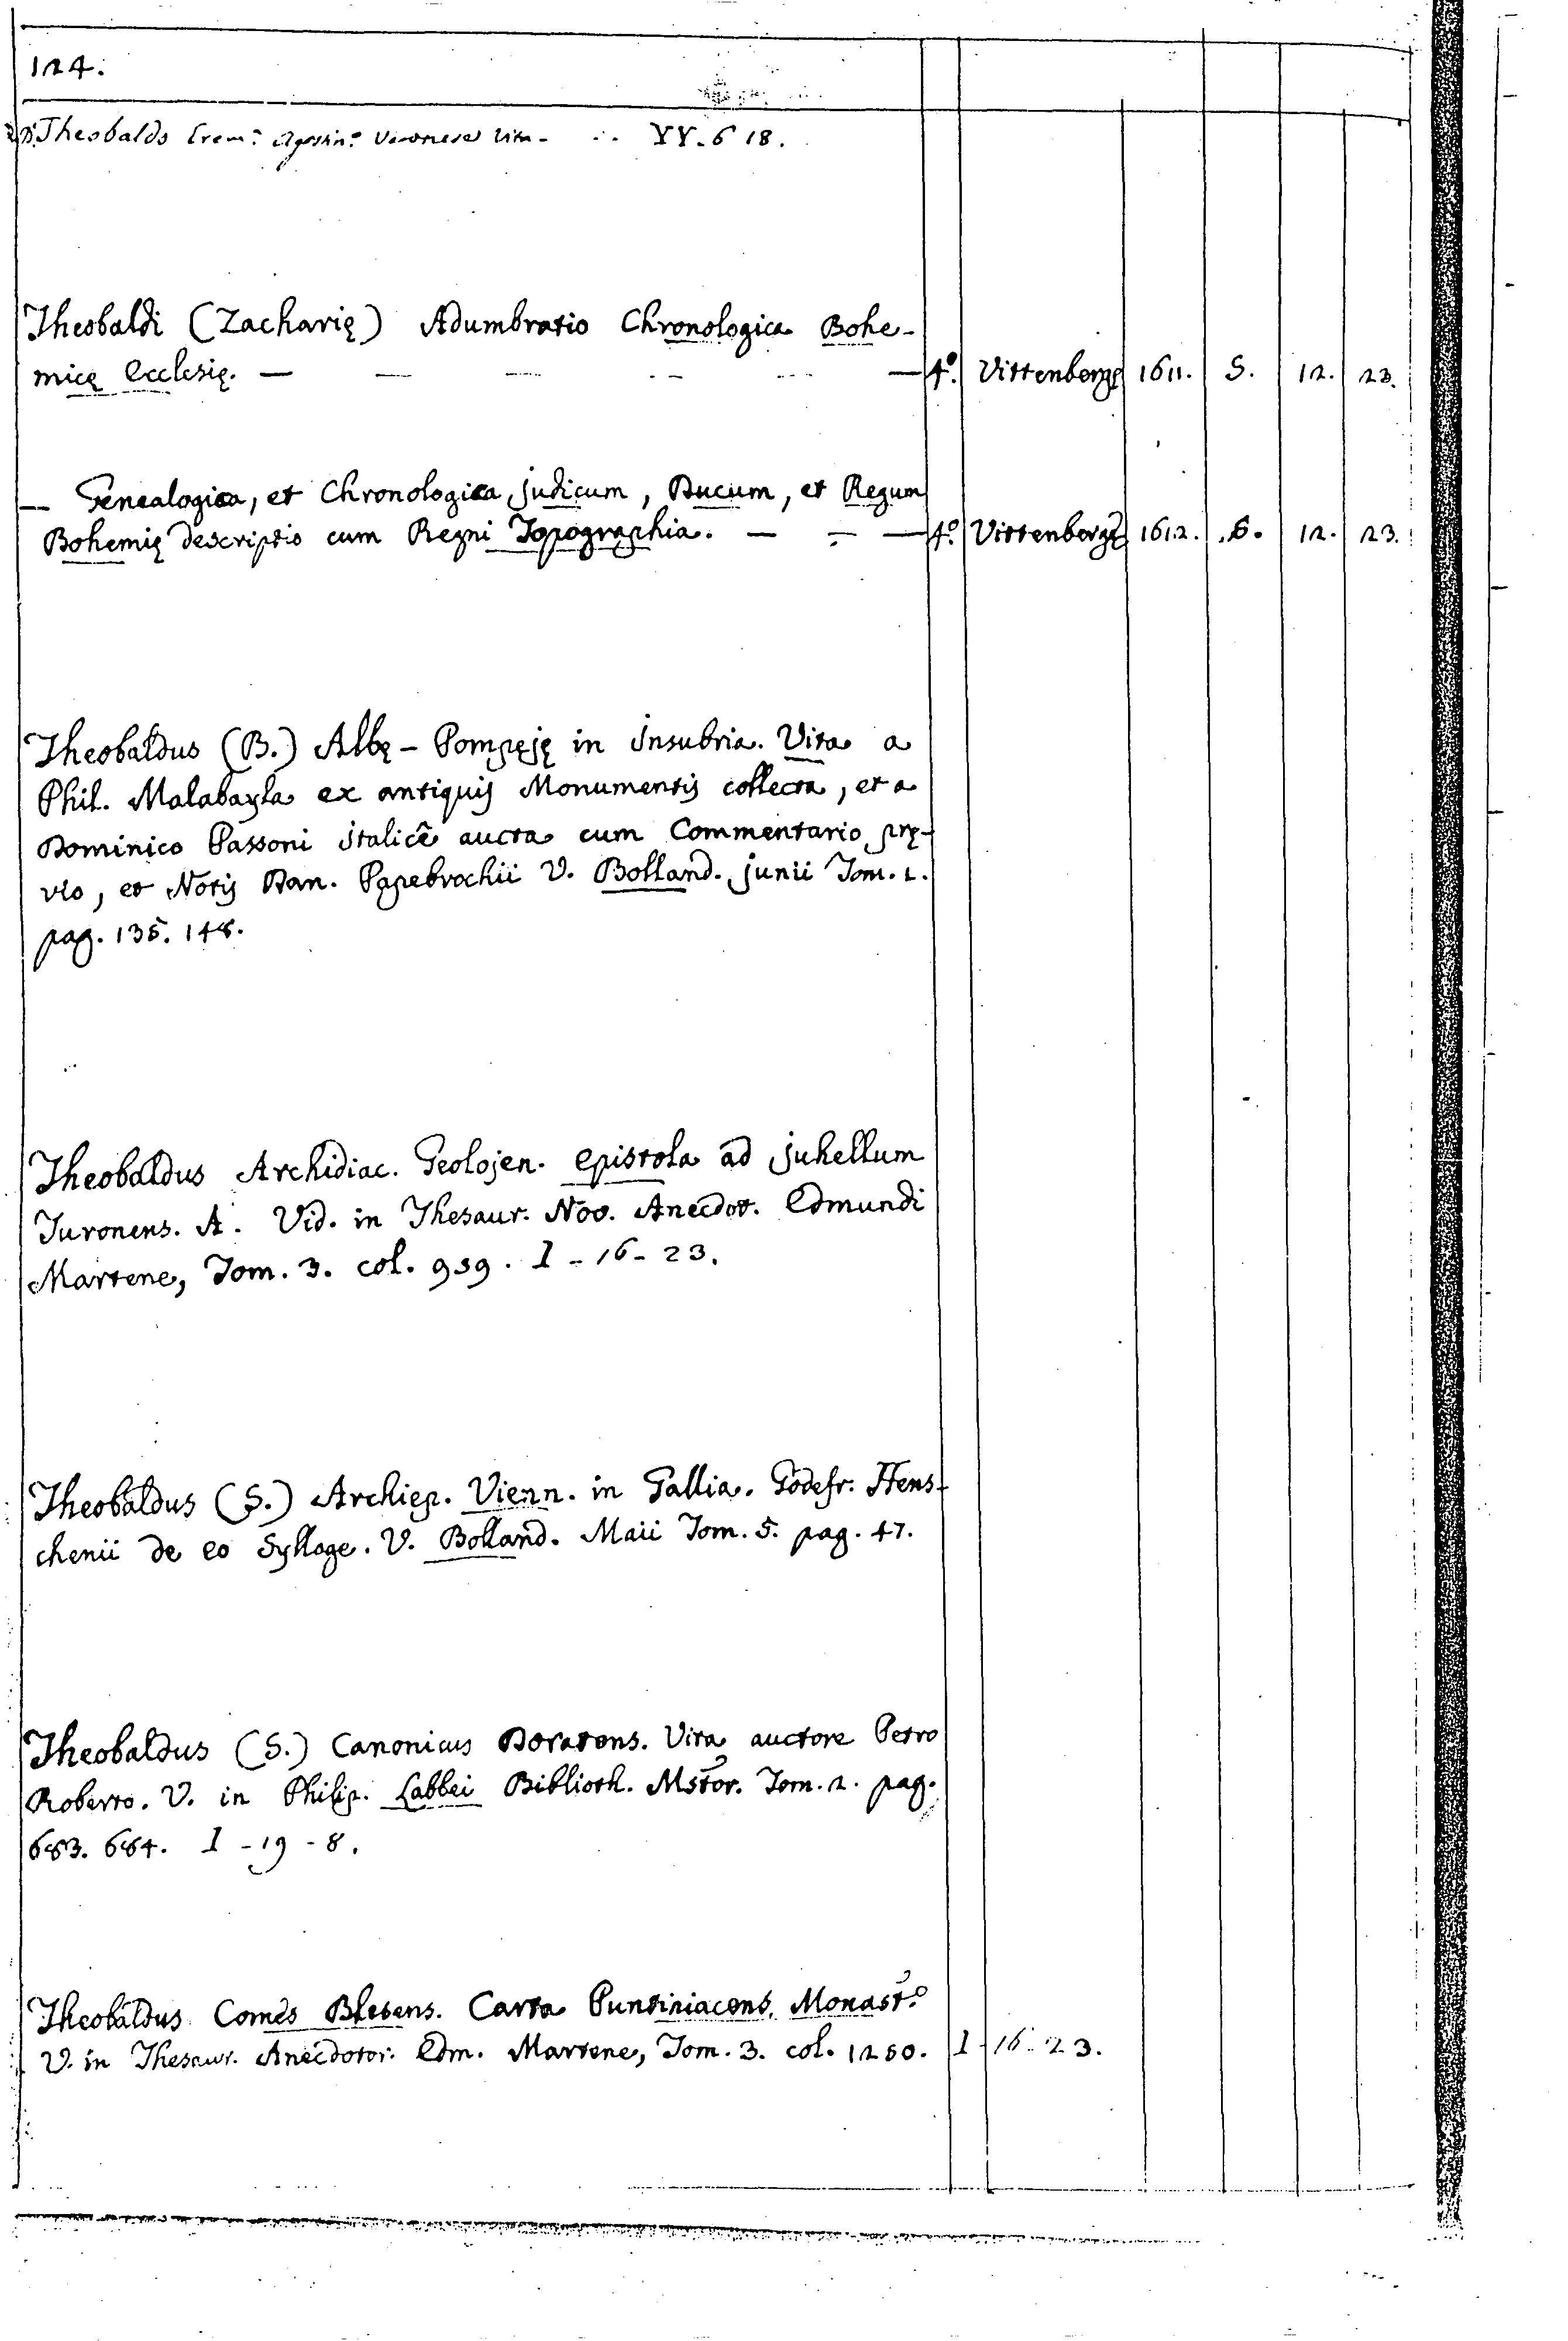 124.
Theobaldo Erem.º Agostin.º Veronese Vita - YY. 6 18.
Theobaldi (Zacharię) Adumbratio Chronologica Bohe-
micę Ecclesię. — — — — — — 4º. Vittenbergę 1611. S. 12. 23.
— Genealogica, et Chronologica judicum, Ducum, et Regum
Bohemię descriptio cum Regni Topographia. — — — 4º. Vittenbergę 1612. S. 12. 23.
Theobaldus (B.) Albę - Pompęję in insubria. Vita a
Phil. Malabayla ex antiquis Monumentis collecta, et a
Dominico Passoni italicè aucta cum Commentario prę-
vio, et Notis Dan. Papebrochii V. Bolland. junii Tom. 1.
pag. 135. 148.
Theobaldus Archidiac. Geolojen. epistola ad juhellum
Turonens. A. Vid. in Thesaur. Nov. Anecdot. Edmundi
Martene, Tom. 3. col. 959. I - 16 - 23.
Theobaldus (S.) Archiep. Vienn. in Gallia. Godefr. Hens-
chenii de eo Sylloge. V. Bolland. Maii Tom. 5. pag. 47.
Theobaldus (S.) Canonicus Doratens. Vita auctore Petro
Roberto. V. in Philip. Labbei Biblioth. Mstor. Tom. 2. pag.
683. 684. I - 19 - 8.
Theobaldus Comes Blesens. Carta Puntiniacens. Monast.º
V. in Thesaur. Anecdotor. Edm. Martene, Tom. 3. col. 1250. I - 16 - 23.